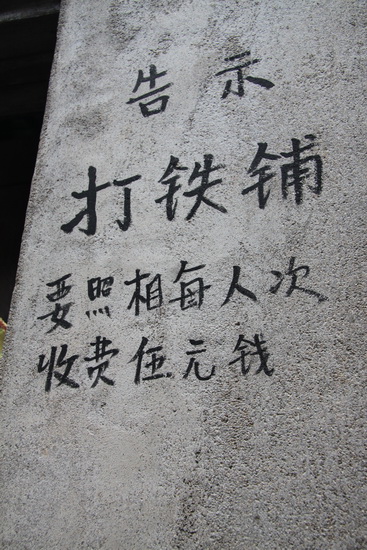 告示
打铁铺
要照相每人次
收费伍元钱